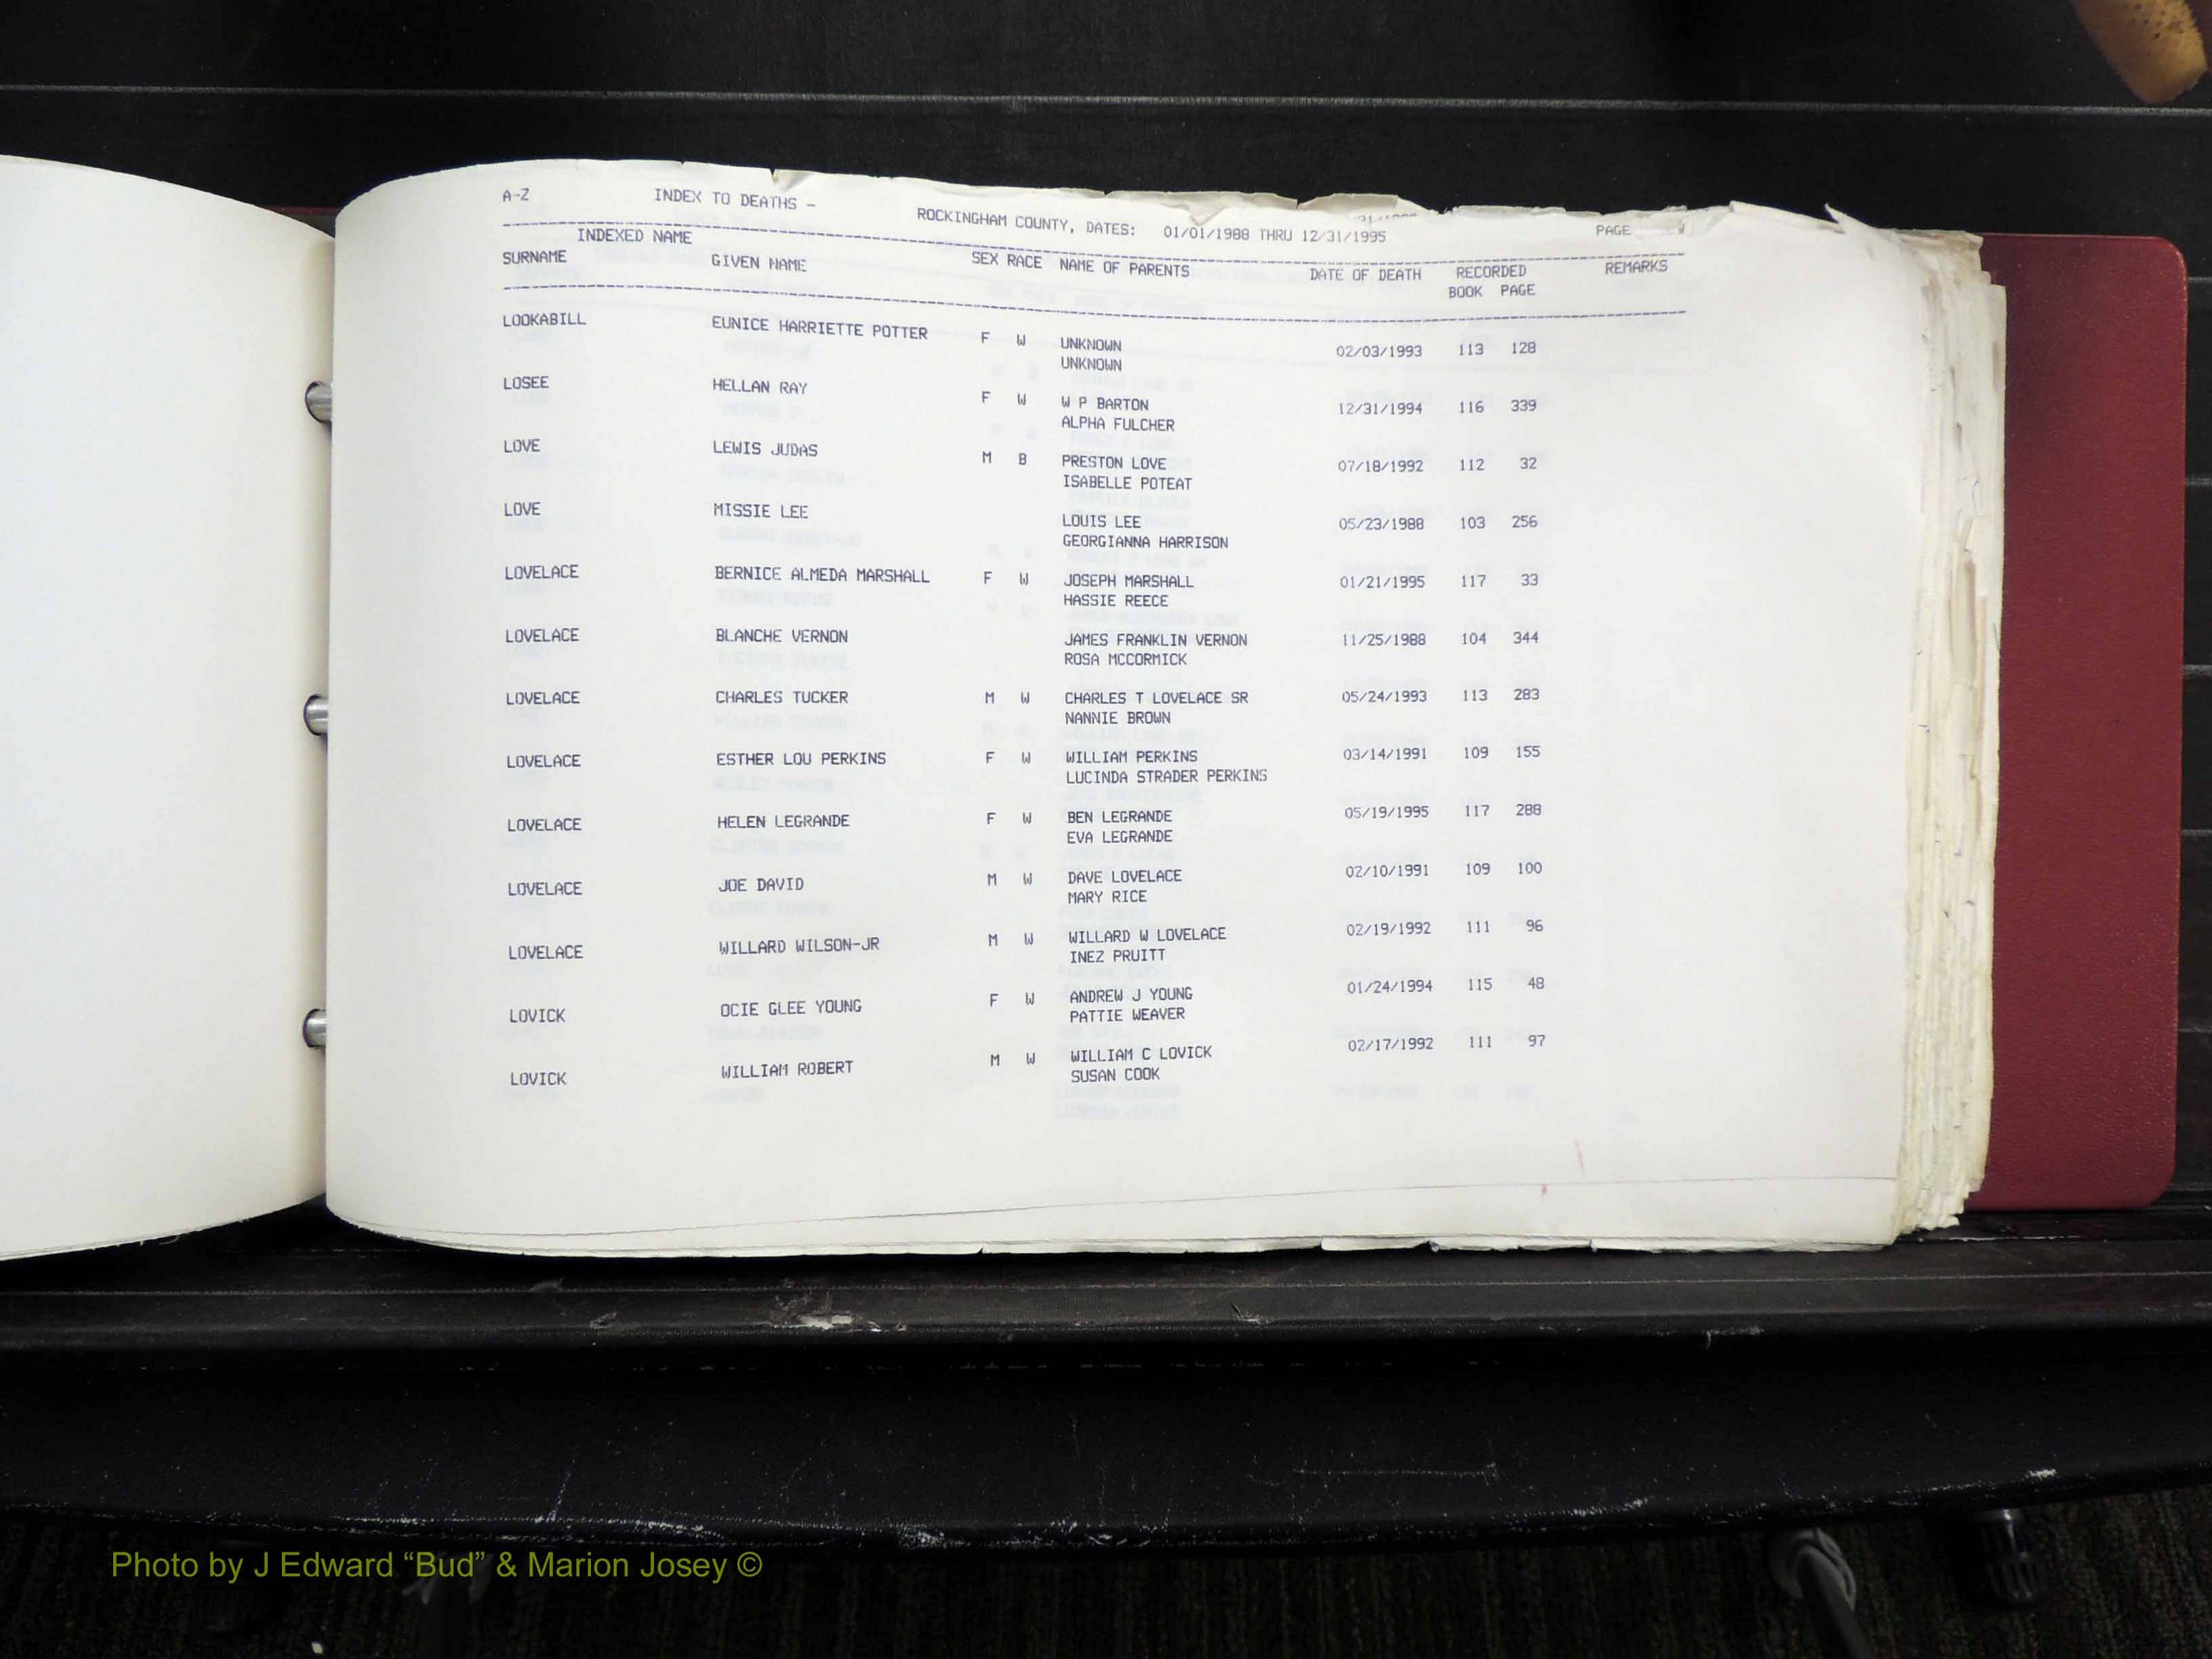 A-Z INDEX TO DEATHS - ROCKINGHAM COUNTY, DATES: 01/01/1988 THRU 12/31/1995 PAGE
INDEXED NAME
SURNAME GIVEN NAME SEX RACE NAME OF PARENTS DATE OF DEATH RECORDED REMARKS
BOOK PAGE
LOOKABILL EUNICE HARRIETTE POTTER F W UNKNOWN 02/03/1993 113 128
UNKNOWN
LOSEE HELLAN RAY F W W P BARTON 12/31/1994 116 339
ALPHA FULCHER
LOVE LEWIS JUDAS M B PRESTON LOVE 07/18/1992 112 32
ISABELLE POTEAT
LOVE MISSIE LEE LOUIS LEE 05/23/1988 103 256
GEORGIANNA HARRISON
LOVELACE BERNICE ALMEDA MARSHALL F W JOSEPH MARSHALL 01/21/1995 117 33
HASSIE REECE
LOVELACE BLANCHE VERNON JAMES FRANKLIN VERNON 11/25/1988 104 344
ROSA MCCORMICK
LOVELACE CHARLES TUCKER M W CHARLES T LOVELACE SR 05/24/1993 113 283
NANNIE BROWN
LOVELACE ESTHER LOU PERKINS F W WILLIAM PERKINS 03/14/1991 109 155
LUCINDA STRADER PERKINS
LOVELACE HELEN LEGRANDE F W BEN LEGRANDE 05/19/1995 117 288
EVA LEGRANDE
LOVELACE JOE DAVID M W DAVE LOVELACE 02/10/1991 109 100
MARY RICE
LOVELACE WILLARD WILSON-JR M W WILLARD W LOVELACE 02/19/1992 111 96
INEZ PRUITT
LOVICK OCIE GLEE YOUNG F W ANDREW J YOUNG 01/24/1994 115 48
PATTIE WEAVER
LOVICK WILLIAM ROBERT M W WILLIAM C LOVICK 02/17/1992 111 97
SUSAN COOK
Photo by J Edward “Bud” & Marion Josey ©